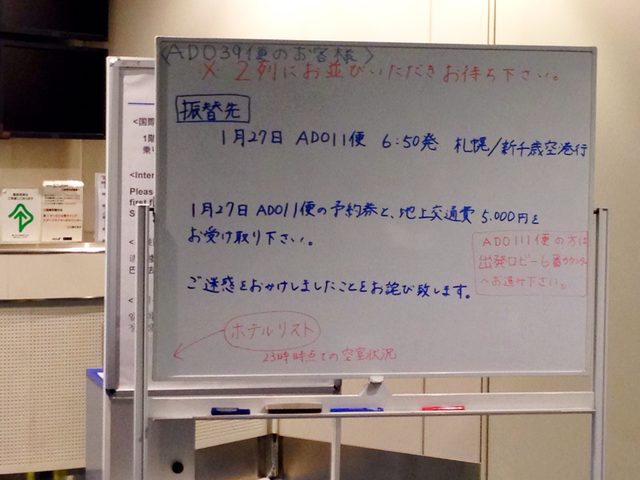 〈ADO39便のお客様〉
※ 2列にお並びいただきお待ち下さい。
振替先
1月27日 ADO11便 6:50発 札幌/新千歳空港行
1月27日 ADO11便の予約券と、地上交通費 5.000円を
お受け取り下さい。
ADO111便の方は
出発ロビー6番カウンター
へお進み下さい。
ご迷惑をおかけしましたことをお詫び致します。
ホテルリスト
23時時点での空室状況
<国際
1階
乗り
<Inter
Please
first f